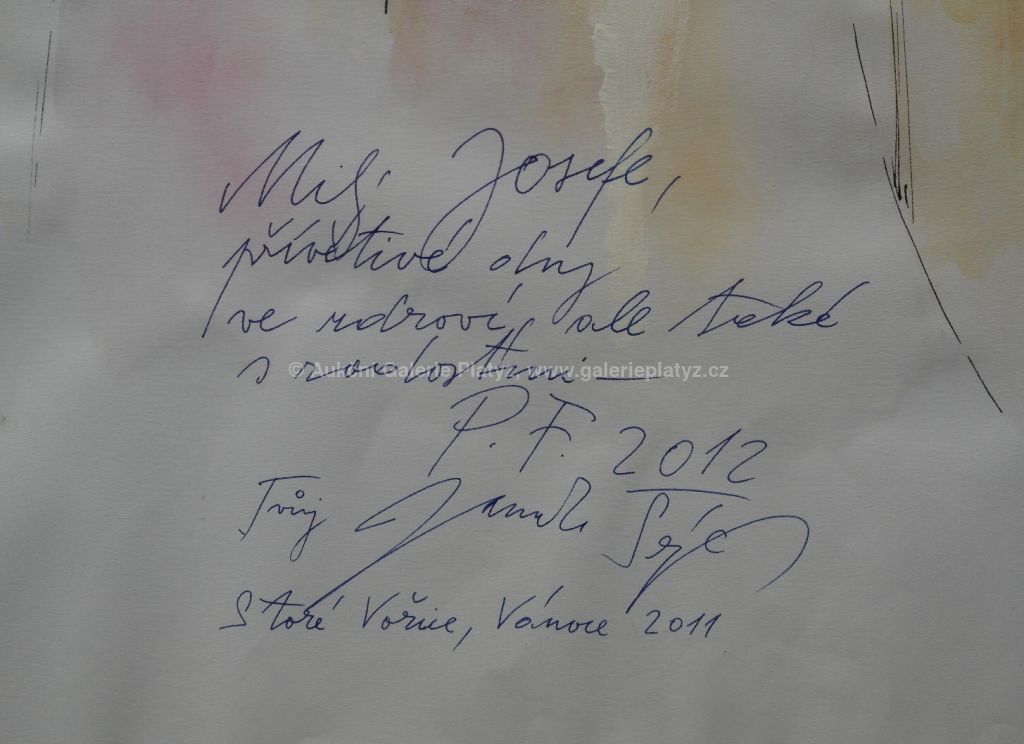 Milý Josefe,
přívětivé dny
ve zdraví, ale také
s radostmi —
© Aukční Galerie Platýz, www.galerieplatyz.cz
P. F. 2012
Tvůj
Staré Vožice, Vánoce 2011